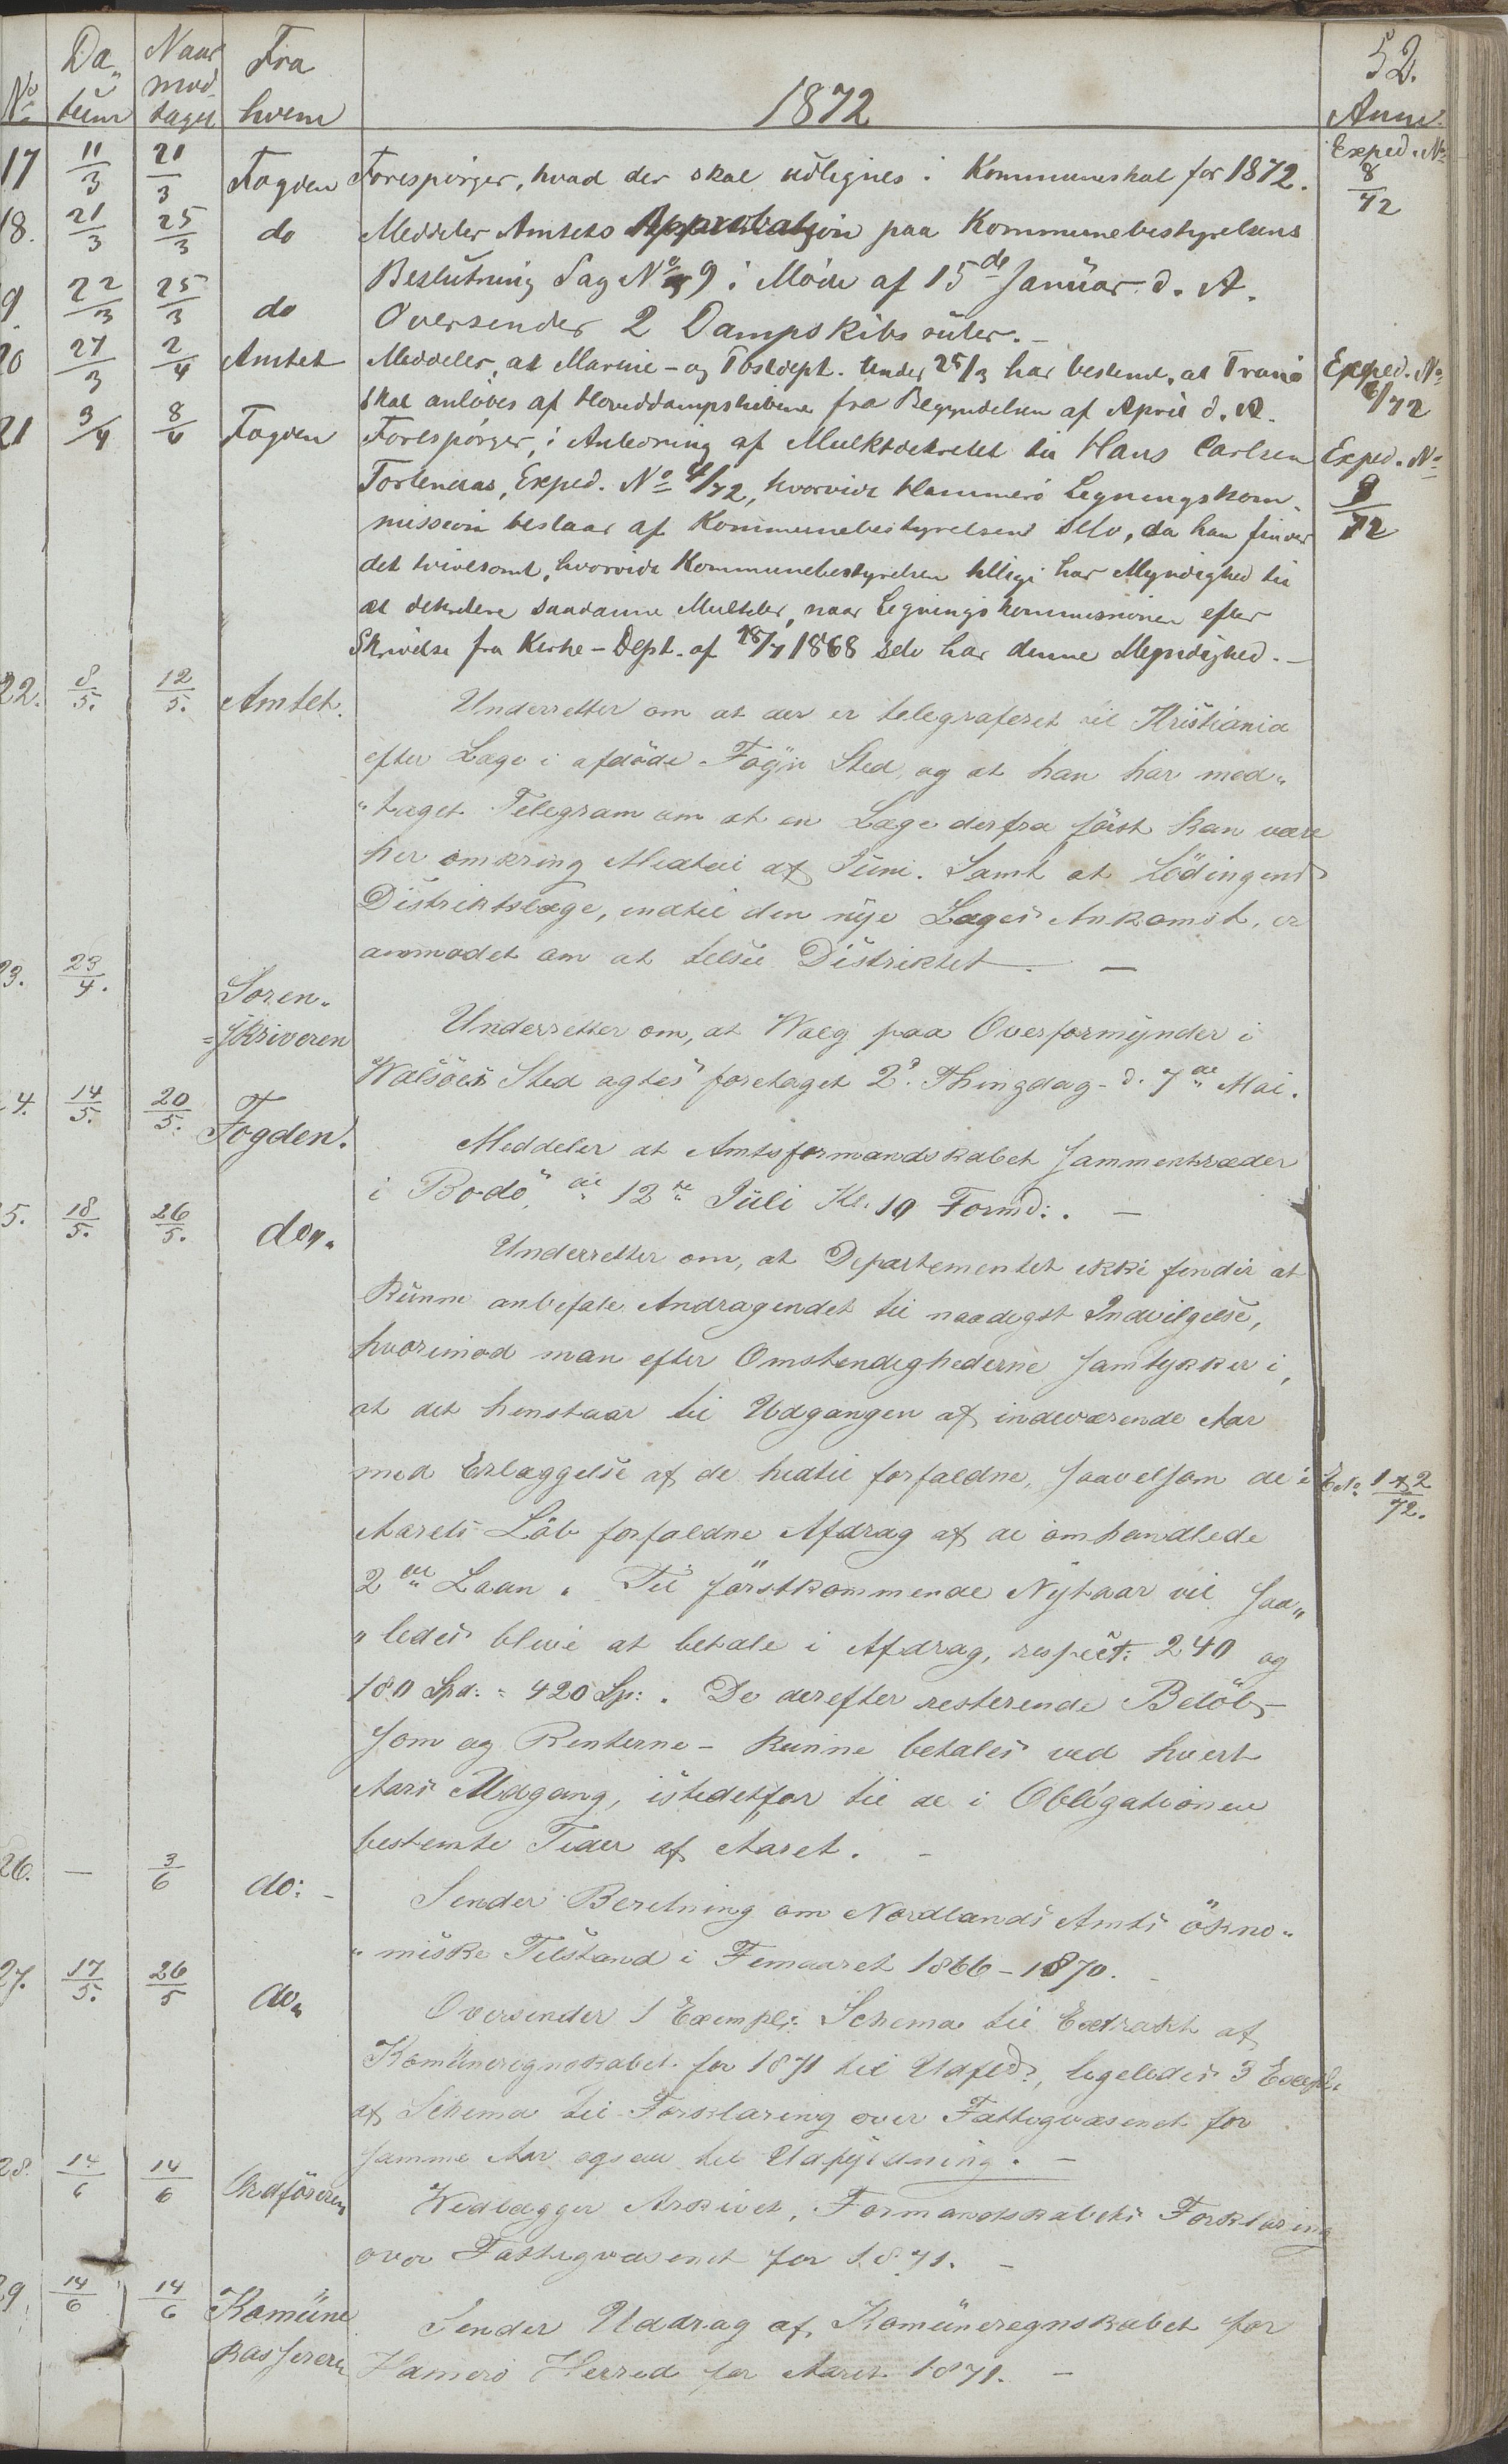 52.
No Da„ Naar Fra
mod
tum taget hvem 1872 Anm.
17 11/3 21/3 Fogden Forespørger, hvad der skal udlignes i Kommuneskat for 1872. Exped. No 8/72
18. 21/3 25/3 do Meddeler Amtets Approbation paa Kommunebestyrelsens
Beslutning Sag No 9 i Møde af 15de Januar d. A.
9. 22/3 25/3 do Oversender 2 Dampskibsruter. –
20 27/3 2/4 Amtet Meddeler, at Marine- og Postdept. under 25/3 har bestemt, at Tranø Exped. No
skal anløbes af Hoveddampskibene fra Begyndelsen af April d. A. 6/72
21 3/4 8/4 Fogden Forespørger, i Anledning af Mulktdekretet til Hans Carlsen Exped. No
Exped. No 4/72, hvorvidt Hammerø Ligningskom-
mission bestaar af Kommunebestyrelsen selv, da han finder
72
det tvivlsomt, hvorvidt Kommunebestyrelsen tillige har Myndighed til
at dekretere saadanne Mulkter, naar Ligningskommissionen efter
Skrivelse fra Kirke-Dept. af 18/7 1868 selv har denne Myndighed. –
22. 8/5. 12/5. Amtet. Underretter om at der er telegraferet til Kristiania
efter Læge i afdøde Sted, og at han har mod„
„taget Telegram om at en Læge derfra først kan være
her omkring Medtil af Juni. Samt at Lödingens
Distriktslæge, indtil den nye Læges Ankomst, er
anmodet om at tilsee Distriktet. –
23. 23/4. Soren„
=skriveren Underretter om, at Valg paa Overformynder i
Sted agtes foretaget 2d Thingdag d. 7de Mai.
24. 14/5. 20/5. Fogden. Meddeler at Amtsformandskabet sammentræder
i Bodö, de 12te Juli Kl. 10 Formd: . –
25. 18/5. 26/5. do„ Underretter om, at Departementet ikke finder at
kunne anbefale Andragendet til naadigst Indvilgelse,
hvorimod man efter Omstendighederne samtykker i,
at det henstaar til Udgangen af indeværende Aar
med Erlæggelse af de hidtil forfaldne, saavelsom de i 1 & 2/72.
Aarets Löb forfaldne Afdrag af de omhandlede
2de Laan. Til förstkommende Nytaar vil saa„
„ledes blive at betale i Afdrag, respect: 240 og
180 Spd: = 420 Sp: . De derefter resterende Belöb –
som og Renterne – kunne betales ved hvert
Aars Udgang, istedetfor til de i Obligationen
bestemte Tider af Aaret. –
26. — 3/6 do: – Sender Beretning om Nordlands Amts ökno„
„miske Tilstand i Femaaret 1866 – 1870. –
27. 17/5. 26/5 do„ Oversender 1 Exempl: Schema til Extrakt af
Komüneregnskabet for 1871 til Udfyld:, ligeledes 3 Exepl:
af Schema til Forklaring over Fattigvæsenet for
samme Aar ogsaa til Udfyldning. –
28. 14/6 14/6 Ordföreren Vedlægger Arkivet, Formandskabets Forklaring
over Fattigvæsenet for 1871. –
29. 14/6 14/6 Komüne Sender Uddrag af Komüneregnskabet for
kasserern Hamerö Herred for Aaret 1871. –